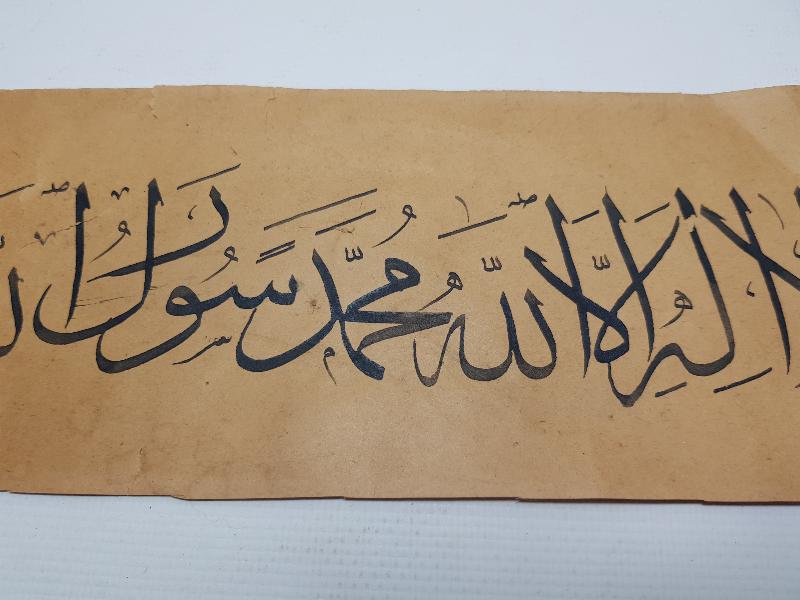 لا اله الا الله محمد رسول ال